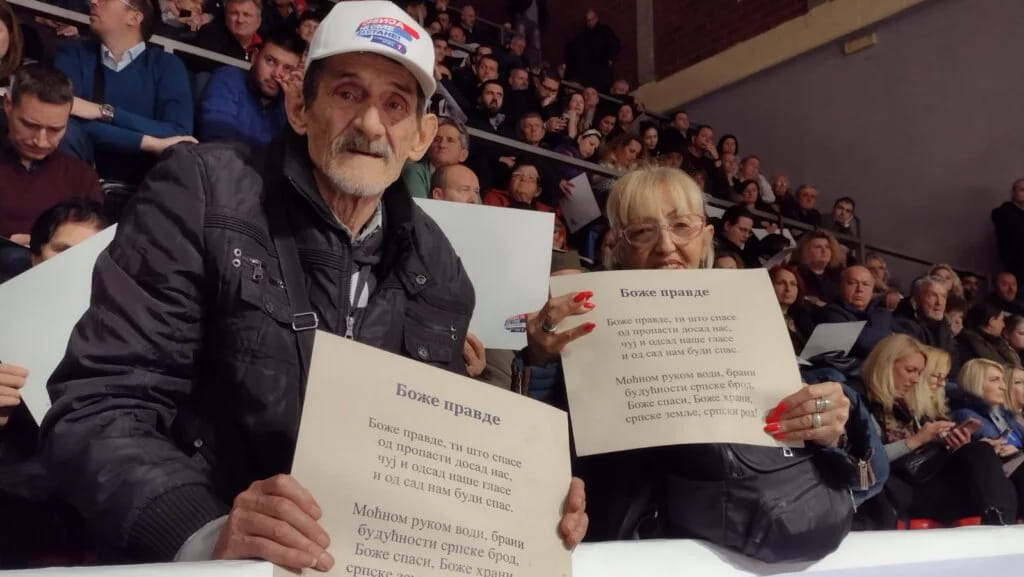 Боже правде
Боже правде, ти што спасе
од пропасти досад нас,
чуј и одсад наше гласе
и од сад нам буди спас.
Моћном руком води, брани
будућности српске брод,
Боже спаси, Боже храни,
Боже правде
Боже правде, ти што спасе
од пропасти досад нас,
чуј и одсад наше гласе
и од сад нам буди спас.
Моћном руком води, брани
будућности српске брод,
Боже спаси, Боже храни,
српске земље, српски род!